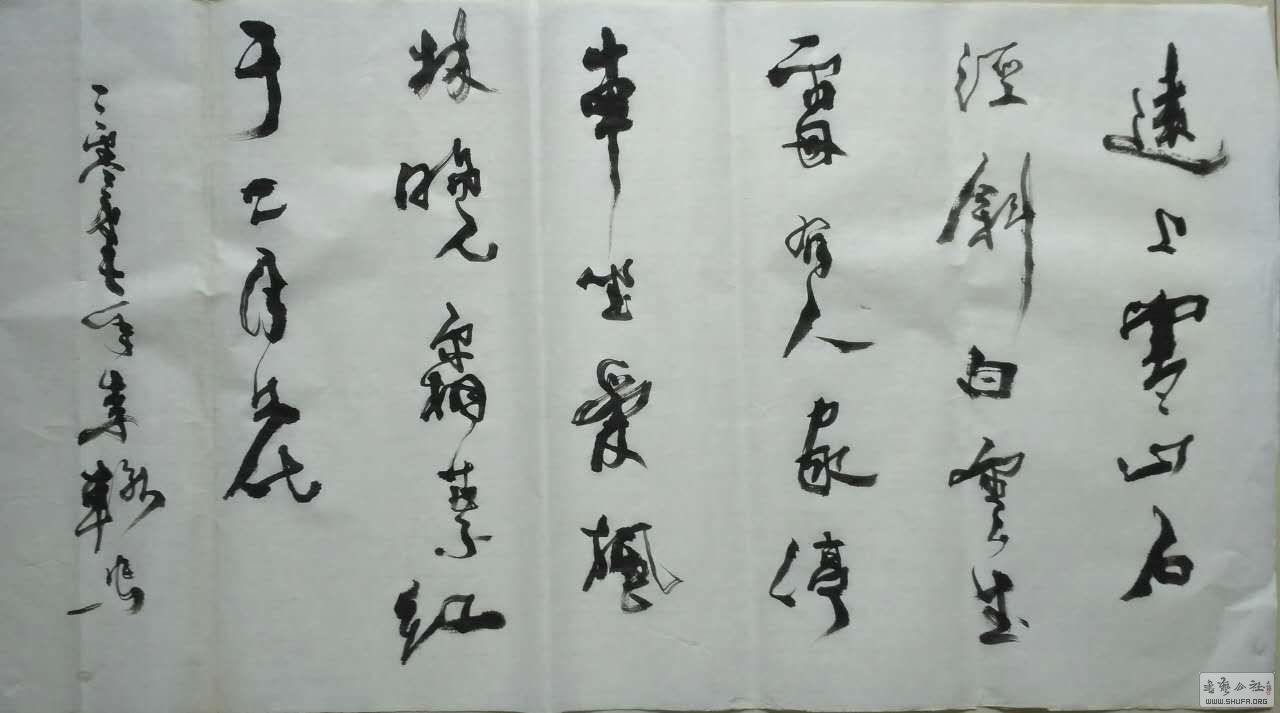 遠上寒山石
徑斜白雲生
處有人家停
車坐愛楓
林晚霜葉紅
于二月花
年
书艺公社
WWW.SHUFA.ORG